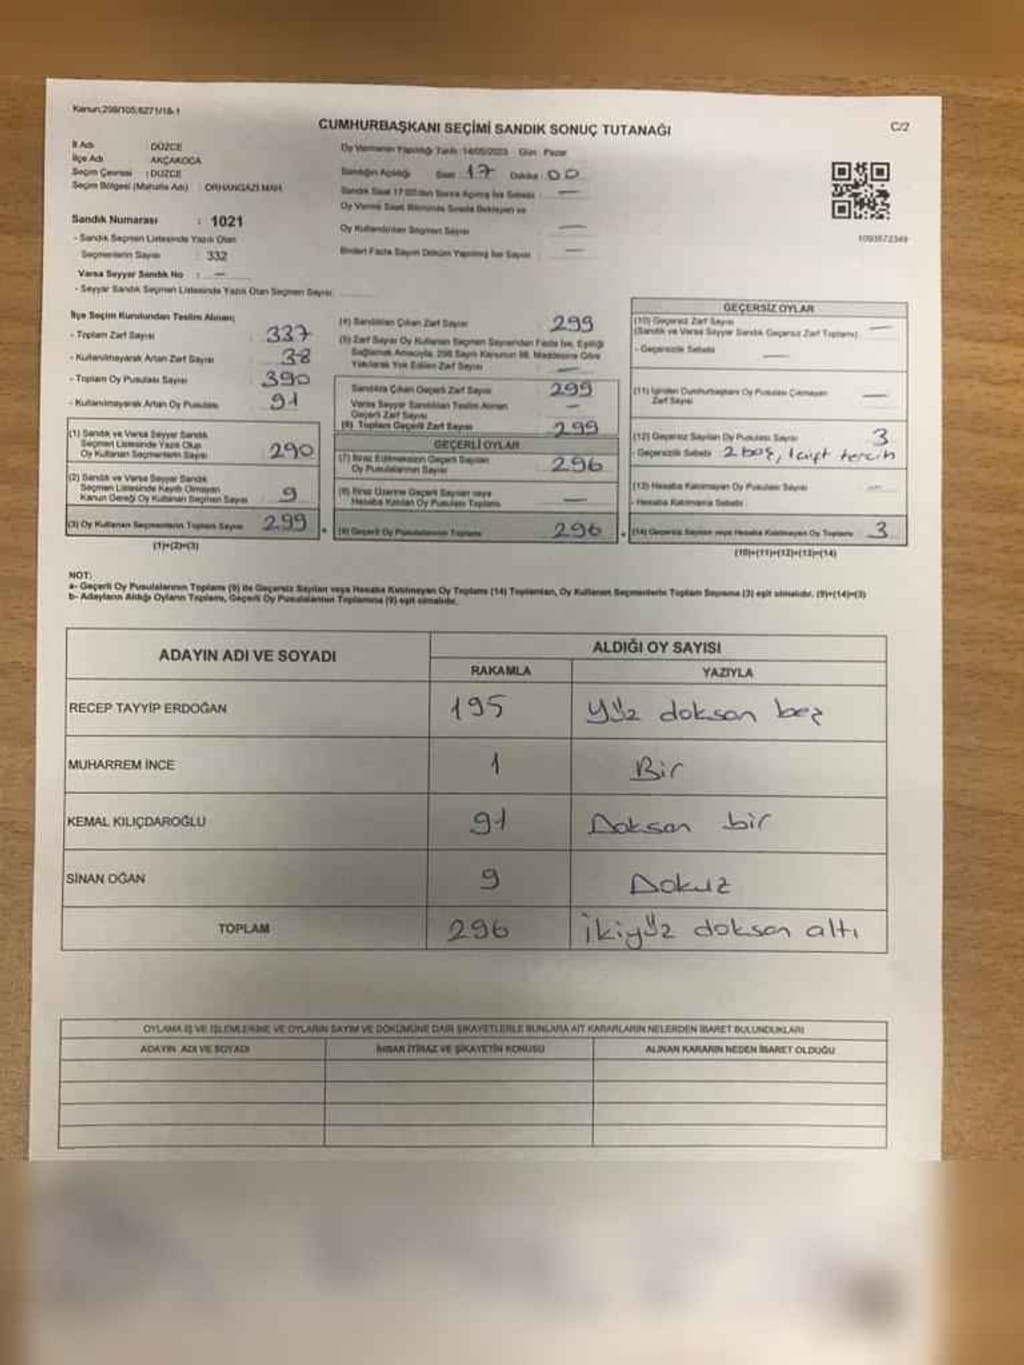 Kanun:298/105;6271/18-1
C/2
CUMHURBAŞKANI SEÇİMİ SANDIK SONUÇ TUTANAĞI
İl Adı : DÜZCE
İlçe Adı : AKÇAKOCA
Seçim Çevresi : DÜZCE
Seçim Bölgesi (Mahalle Adı) : ORHANGAZİ MAH.
Sandık Numarası : 1021
- Sandık Seçmen Listesinde Yazılı Olan
Seçmenlerin Sayısı : 332
Varsa Seyyar Sandık No : —
- Seyyar Sandık Seçmen Listesinde Yazılı Olan Seçmen Sayısı:
Oy Vermenin Yapıldığı Tarih :14/05/2023 - Gün : Pazar
Sandığın Açıldığı Saat : 17 Dakika : 00
Sandık Saat 17:00'den Sonra Açılmış İse Sebebi : —
Oy Verme Saati Bitiminde Sırada Bekleyen ve
Oy Kullandırılan Seçmen Sayısı : —
Birden Fazla Sayım Döküm Yapılmış İse Sayısı : —
1093572349
İlçe Seçim Kurulundan Teslim Alınan;
- Toplam Zarf Sayısı : 337
- Kullanılmayarak Artan Zarf Sayısı : 38
- Toplam Oy Pusulası Sayısı : 390
- Kullanılmayarak Artan Oy Pusulası : 91
(1) Sandık ve Varsa Seyyar Sandık
Seçmen Listesinde Yazılı Olup
Oy Kullanan Seçmenlerin Sayısı : 290
(2) Sandık ve Varsa Seyyar Sandık
Seçmen Listesinde Kayıtlı Olmayan
Kanun Gereği Oy Kullanan Seçmen Sayısı : 9
(3) Oy Kullanan Seçmenlerin Toplam Sayısı : 299
(1)+(2)=(3)
(4) Sandıktan Çıkan Zarf Sayısı : 299
(5) Zarf Sayısı Oy Kullanan Seçmen Sayısından Fazla İse, Eşitliği
Sağlamak Amacıyla, 298 Sayılı Kanunun 98. Maddesine Göre
Yakılarak Yok Edilen Zarf Sayısı : —
Sandıkta Çıkan Geçerli Zarf Sayısı : 299
Varsa Seyyar Sandıktan Teslim Alınan
Geçerli Zarf Sayısı : —
(6) Toplam Geçerli Zarf Sayısı : 299
GEÇERLİ OYLAR
(7) İtiraz Edilmeksizin Geçerli Sayılan
Oy Pusulalarının Sayısı : 296
(8) İtiraz Üzerine Geçerli Sayılan veya
Hesaba Katılan Oy Pusulası Toplamı : —
(9) Geçerli Oy Pusulalarının Toplamı : 296
GEÇERSİZ OYLAR
(10) Geçersiz Zarf Sayısı
(Sandık ve Varsa Seyyar Sandık Geçersiz Zarf Toplamı) : —
- Geçersizlik Sebebi : —
(11) İçinden Cumhurbaşkanı Oy Pusulası Çıkmayan
Zarf Sayısı : —
(12) Geçersiz Sayılan Oy Pusulası Sayısı : 3
- Geçersizlik Sebebi : 2 boş, 1 çift tercih
(13) Hesaba Katılmayan Oy Pusulası Sayısı : —
- Hesaba Katılmama Sebebi :
(14) Geçersiz Sayılan veya Hesaba Katılmayan Oy Toplamı : 3
(10)+(11)+(12)+(13)=(14)
NOT:
a- Geçerli Oy Pusulalarının Toplamı (9) ile Geçersiz Sayılan veya Hesaba Katılmayan Oy Toplamı (14) Toplamları, Oy Kullanan Seçmenlerin Toplam Sayısına (3) eşit olmalıdır. (9)+(14)=(3)
b- Adayların Aldığı Oyların Toplamı, Geçerli Oy Pusulalarının Toplamına (9) eşit olmalıdır.
ADAYIN ADI VE SOYADI
ALDIĞI OY SAYISI
RAKAMLA YAZIYLA
RECEP TAYYİP ERDOĞAN 195 Yüz doksan beş
MUHARREM İNCE 1 Bir
KEMAL KILIÇDAROĞLU 91 Doksan bir
SİNAN OĞAN 9 Dokuz
TOPLAM 296 İkiyüz doksan altı
OYLAMA İŞ VE İŞLEMLERİNE VE OYLARIN SAYIM VE DÖKÜMÜNE DAİR ŞİKAYETLERLE BUNLARA AİT KARARLARIN NELERDEN İBARET BULUNDUKLARI
ADAYIN ADI VE SOYADI İHBAR İTİRAZ VE ŞİKAYETİN KONUSU ALINAN KARARIN NEDEN İBARET OLDUĞU